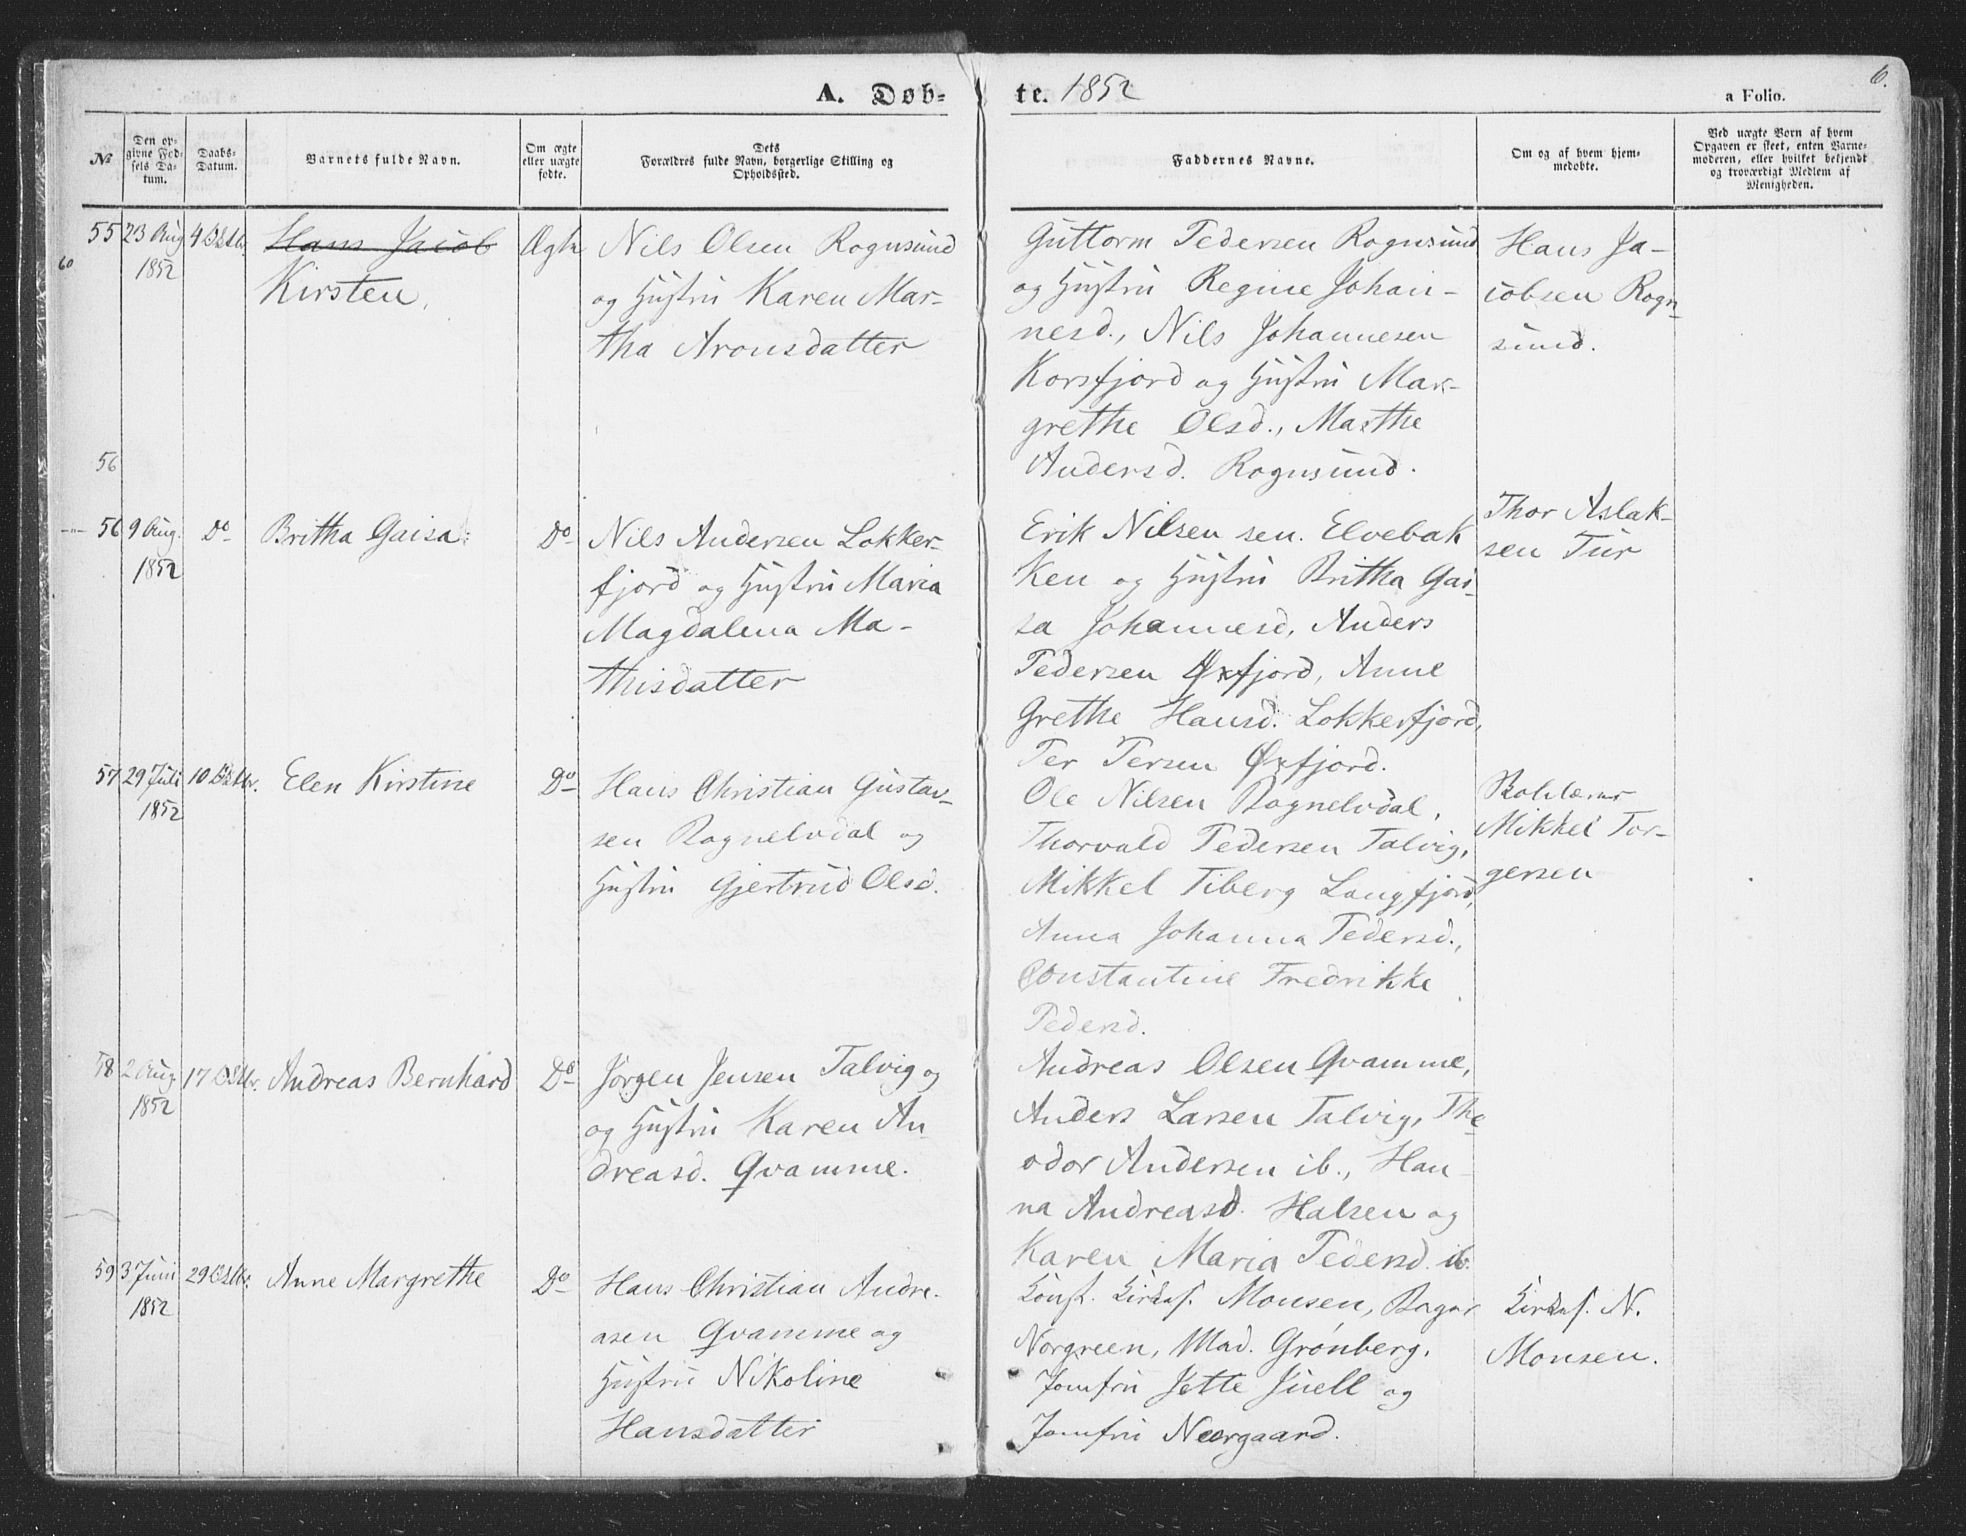 A. Døb-
te. 1852
a Folio.
6.
No
Den op-
givne Fød-
sels Da-
tum.
Daabs-
Datum.
Barnets fulde Navn.
Om ægte
eller uægte
fødte.
Dets
Forældres fulde Navn, borgerlige Stilling og
Opholdssted.
Faddernes Navne.
Om og af hvem hjem-
medøbte.
Ved uægte Børn af hvem
Opgaven er skeet, enten Barne-
moderen, eller hvilket bekjendt
og troværdigt Medlem af
Menigheden.
55
60
23 Aug
1852
4 Octbr.
Hans Jacob
Kirsten.
Ægte
Nils Olsen Rognsund
og Hustru Karen Mar-
tha Aronsdatter
Guttorm Pedersen Rognsund
og Hustru Regine Johan-
nesd., Nils Johannesen
Korsfjord og Hustru Mar-
grethe Olsd., Marthe
Andersd. Rognsund.
Hans Ja-
cobsen Rogn-
sund.
56
56
9 Aug.
1852
Do
Britha Gaisa.
Do
Nils Andersen Lokker-
fjord og Hustru Maria
Magdalena Ma-
thisdatter
Erik Nilsen sen. Elvebak
ken og Hustru Britha Gai-
sa Johannesd, Anders
Pedersen Øxfjord, Anne
Grethe Hansd. Lokkerfjord,
Per Persen Øxfjord.
Thor Aslak-
sen Tur
57
29 Juli
1852
10 Octbr.
Elen Kirstine
Do
Hans Christian Gustav-
sen Rognelvdal og
Hustru Gjertrud Olsd.
Ole Nilsen Rognelvdal,
Thorvald Pedersen Talvig,
Mikkel Tiberg Langfjord,
Anna Johanna Pedersd.,
Constantine Fredrikke
Pedersd.
Mikkel Tor-
gersen
58
2 Aug.
1852
17 Octbr.
Andreas Bernhard
Do
Jørgen Jensen Talvig og
og Hustru Karen An-
dreasd. Qvamme.
Andreas Olsen Qvamme,
Anders Larsen Talvig, The-
odor Andersen ib., Han-
na Andreasd. Halsen og
Karen Maria Pedersd. ib.
59
3 Juni
1852
29 Octbr.
Anne Margrethe
Do
Hans Christian Andre-
asen Qvamme og
Hustru Nikoline
Hansdatter
Const. Kirkes. Monsen, Bager
Norgreen, Mad. Grønberg,
Jomfru Jette Juell og
Jomfru Neergaard.
Kirkes. N.
Monsen.